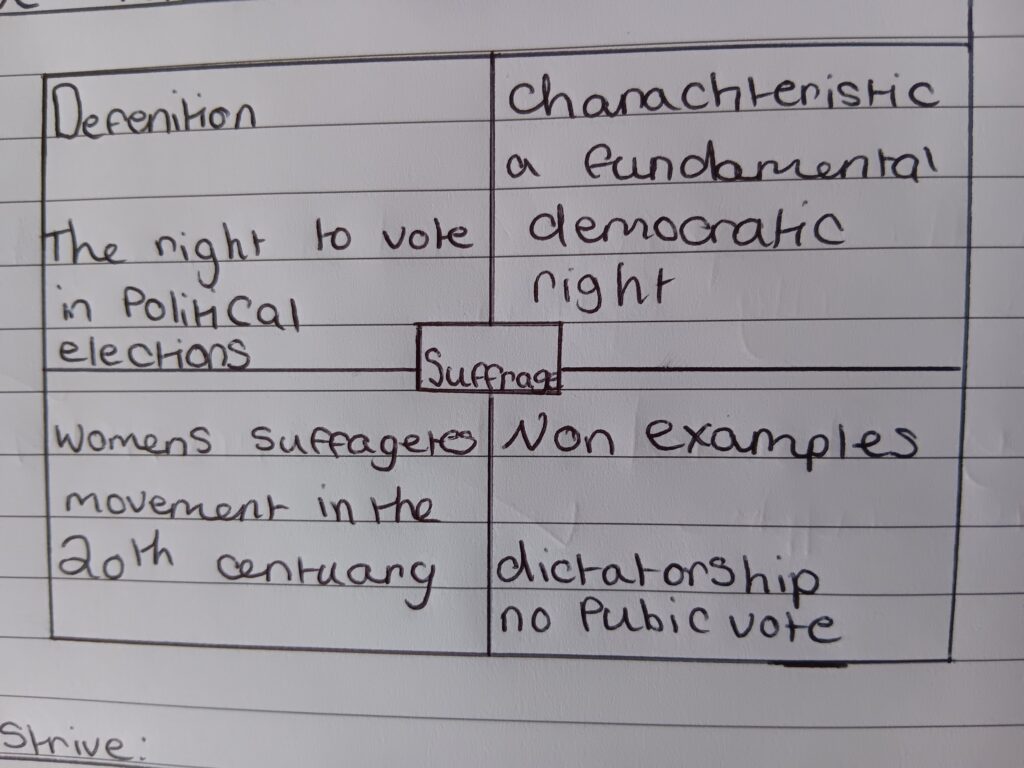 Defenition
The right to vote
in Political
elections
Charachteristic
a fundamental
democratic
right
Suffrage
Womens suffageres
movement in the
20th centuary
Non examples
dictatorship
no Pubic vote
Strive: